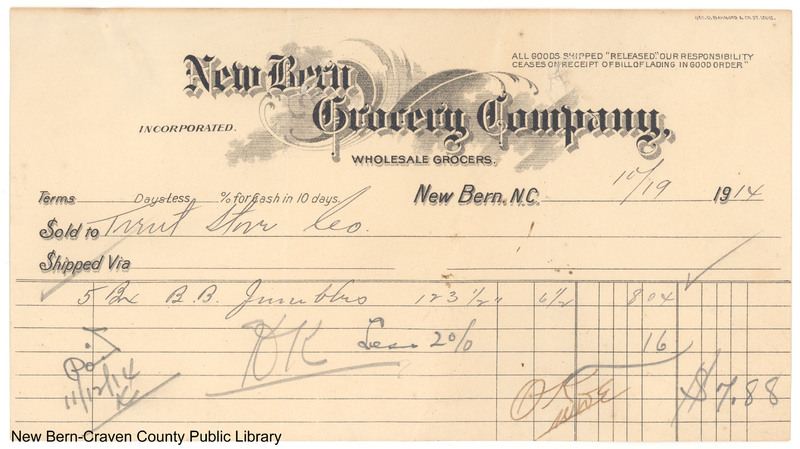 GEO. D. BARNARD & CO. ST. LOUIS.
ALL GOODS SHIPPED "RELEASED." OUR RESPONSIBILITY
CEASES ON RECEIPT OF BILL OF LADING IN GOOD ORDER."
New Bern
Grocery Company,
INCORPORATED.
WHOLESALE GROCERS.
Terms Days Less % for Cash in 10 days. New Bern, N.C. 10/19 1914
Sold to Trent Store Co.
Shipped Via
5 Bx B.B. Jumbles 123 1/2" 6 1/2 8 04
OK Less 2% 16
Paid
11/12/14
OK
$7.88
New Bern-Craven County Public Library